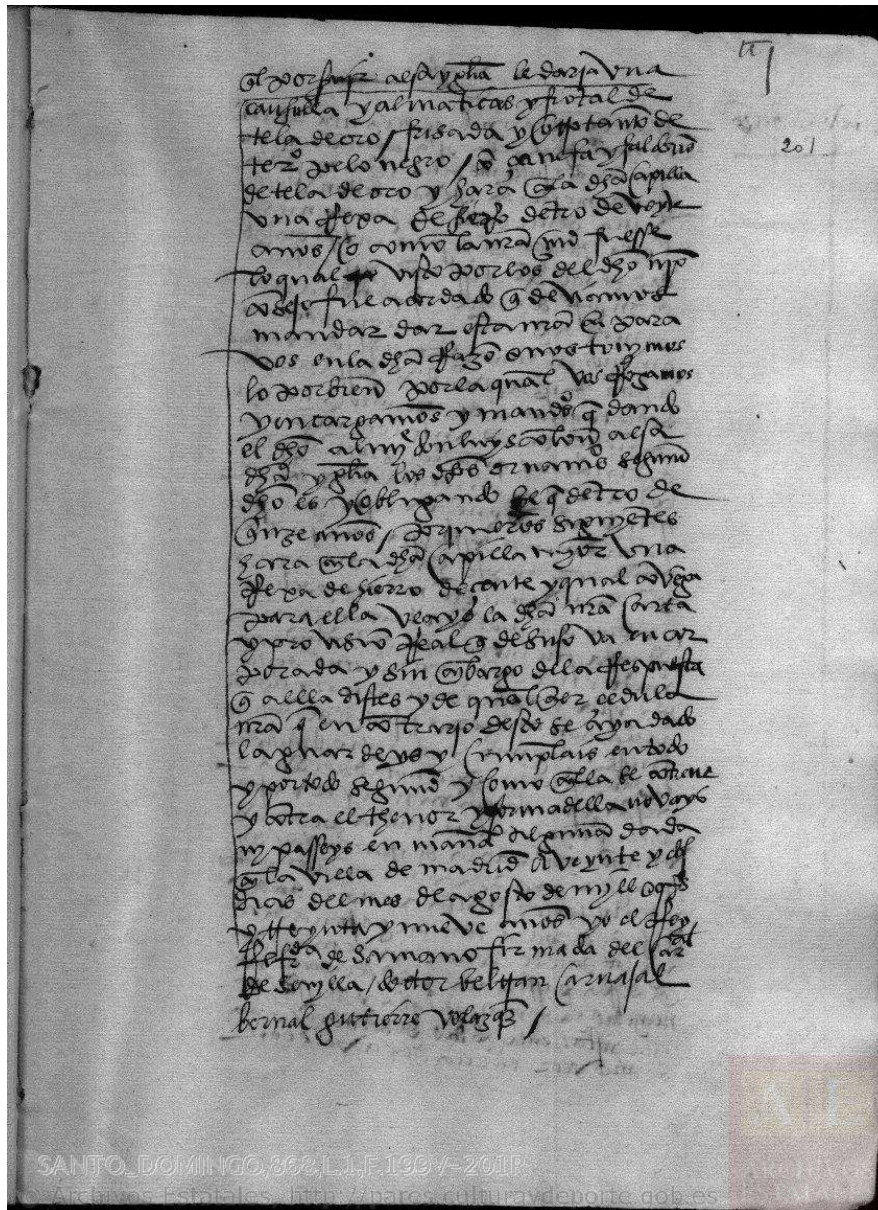 201
ql por servir a la ygłia le daria una
casulla y almaticas y frotal de
tela de oro frisada y otro tanto de
terº pelo negro / cō çanefa y
de tela de oro y hara en la dhā capilla
una rrexa de hierro dētro de veynte
años / o como la nrā md fuesse
lo qual visto por los del dhō nrō
cōsejo fue acordado q̄ deviamos
mandar dar esta nrā para
vos en la dhā rrazō e nos tovimos
lo por bien por la qual vos rrogamos
y encargamos y mandamos q̄ dando
el dhō almyᵉ don luys colon a esa
dhā ygłia los dhōs ornamᵒˢ segund
dhō es y obligandose q̄ dētro de
quinze años / primeros siguyētes
hara en la dhā capilla mayor una
rrexa de hierro decente y qual cōvēga
para ella veays la dhā nrā carta
y provisiō rreal q̄ de suso va encor
porada y sin embargo de la rrespuesta
q̄ a ella distes y de qualquier cedula
nrā q̄ en cōtrario desto se aya dado
la guardeys y cumplais en todo
y por todo segund y como en ella se cōtiene
y contra el thenor y forma della no vays
ny passeys en manᵃ alguna dada
en la villa de madrid a veynte y
dias del mes de agosto de myll e qºs
y treynta y nueve años yo el rrey
rrefrᵈᵃ de samano firmada del carᵃˡ
de sevylla / dotor beltran carvajal
bernal gutierre velazqz /
SANTO_DOMINGO,868,L.1,F.199V-201R
© Archivos Estatales, http://pares.culturaydeporte.gob.es